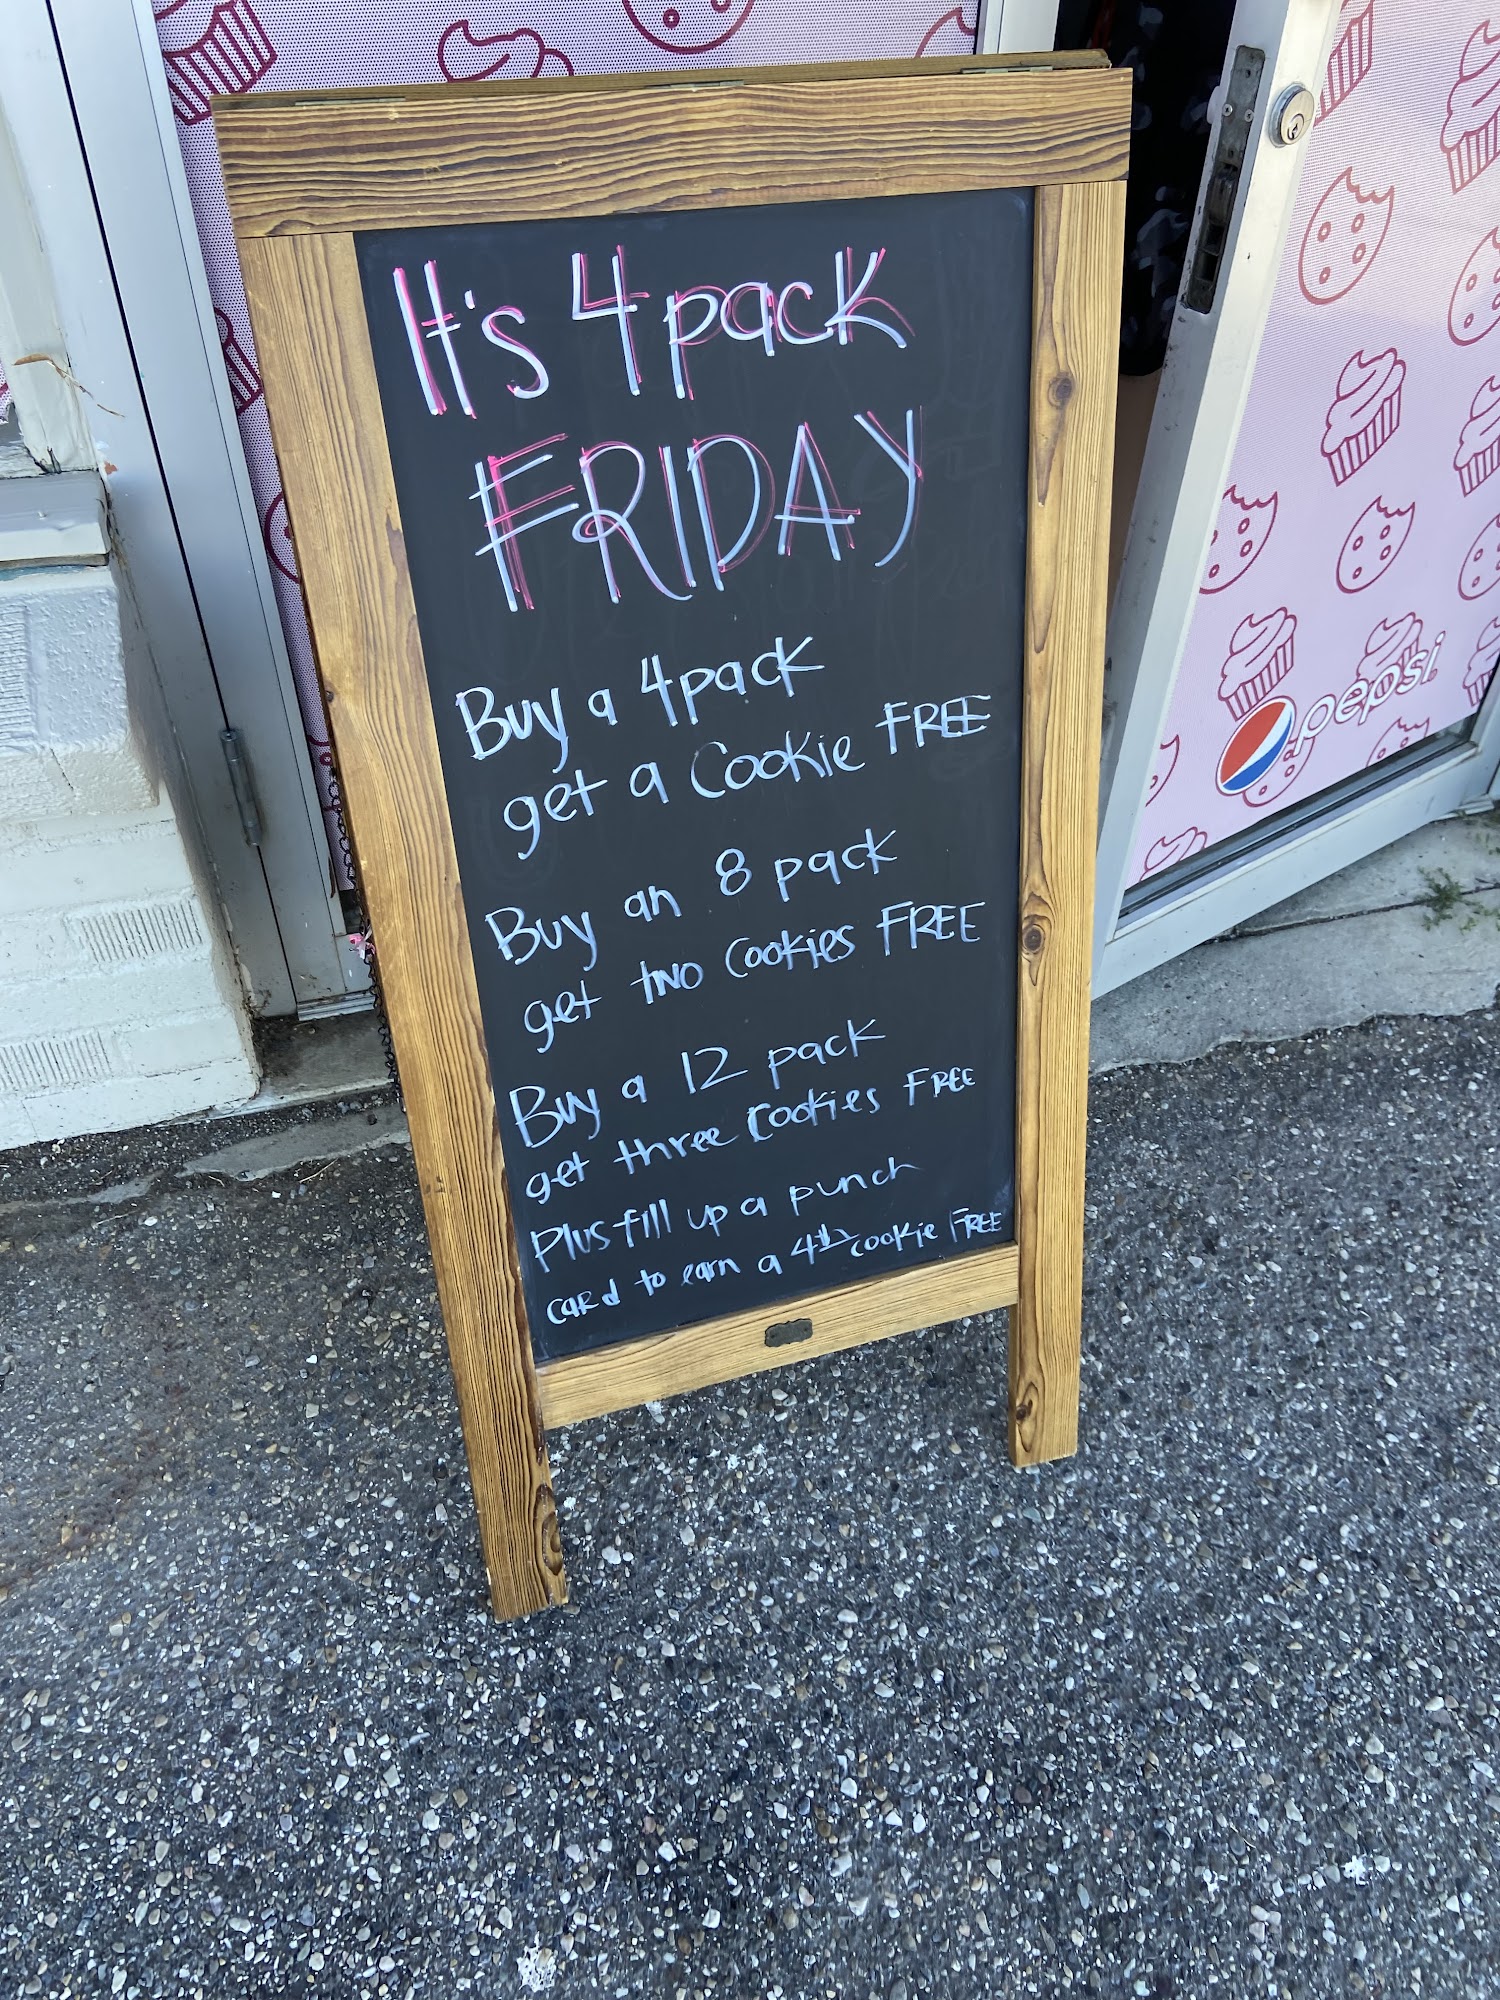 It's 4 pack
FRIDAY
Buy a 4 pack
get a Cookie FREE
Buy an 8 pack
get two cookies FREE
Buy a 12 pack
get three cookies FREE
Plus fill up a punch
card to earn a 4th cookie FREE
pepsi